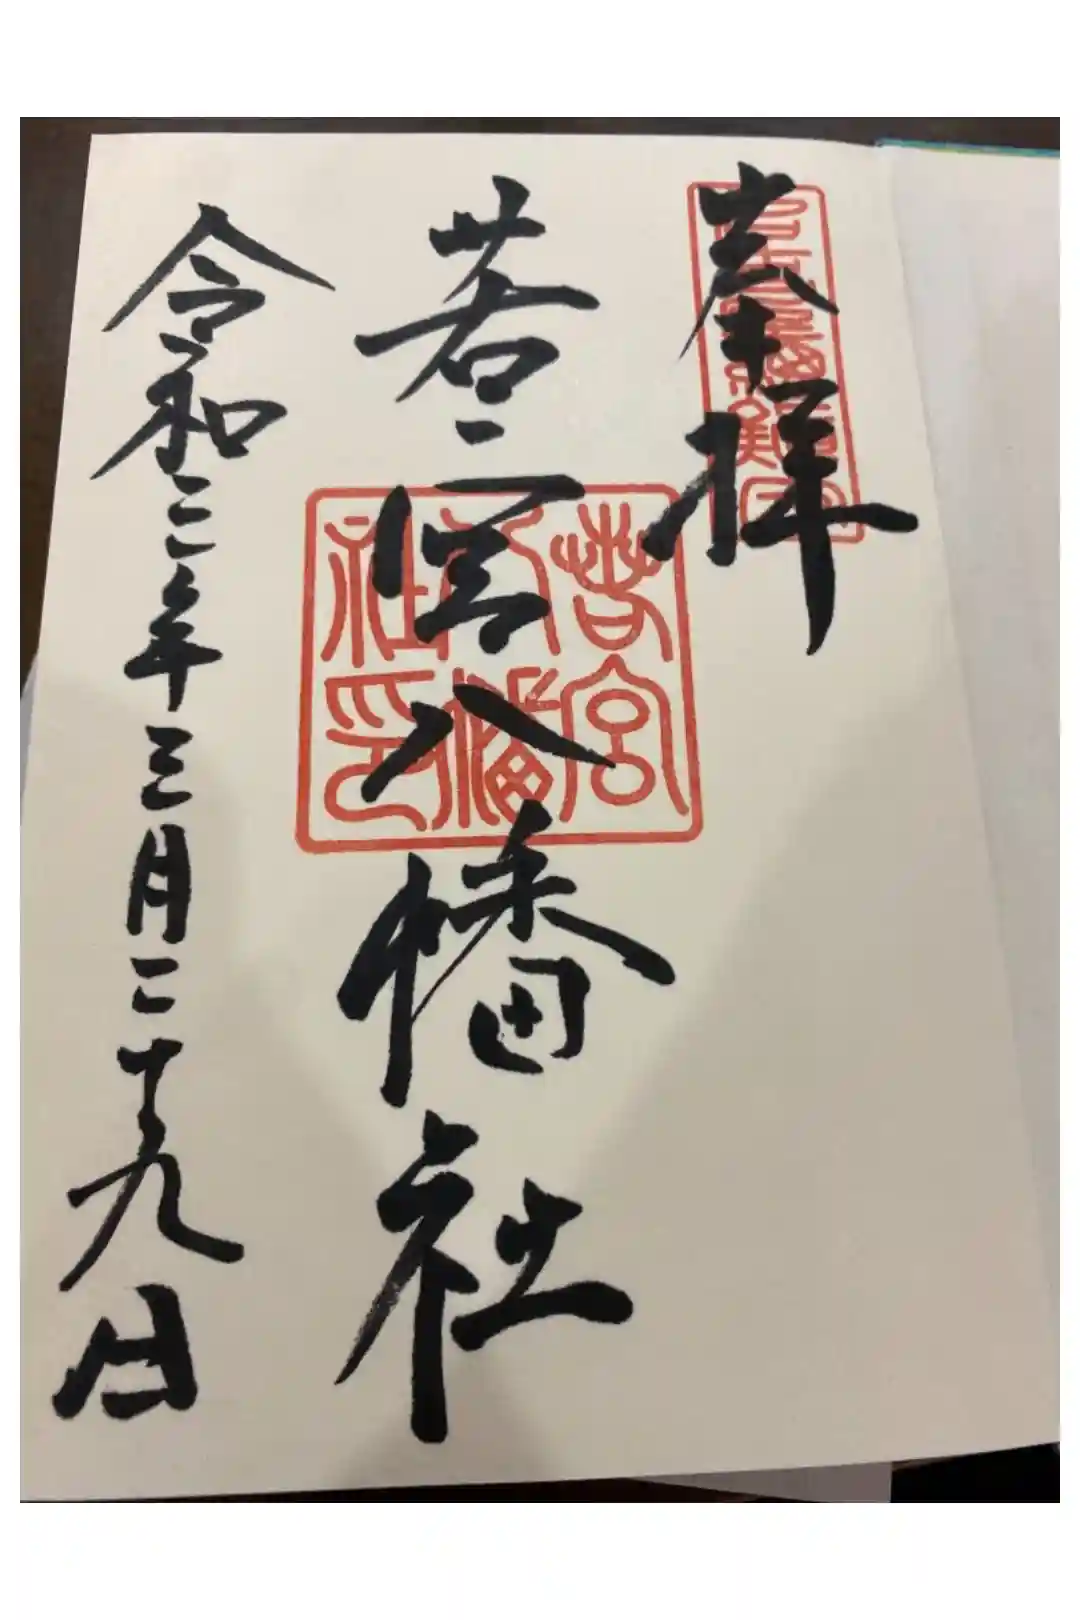 奉拝
若宮八幡社
若宮八幡社印
令和二年三月二十九日